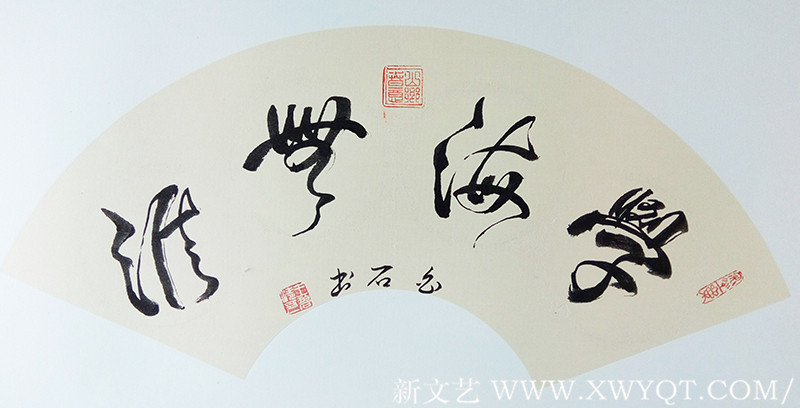 學海無涯
石书
新文艺 WWW.XWYQT.COM/